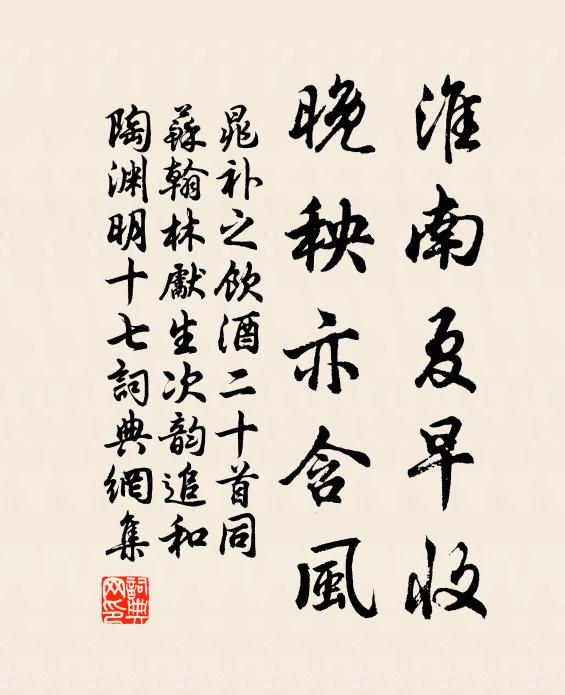 淮南夏早收
晚秧亦含風
晁补之飲酒二十首同
蘇翰林獻生次韵追和
陶渊明十七詞典網集
詞典网印